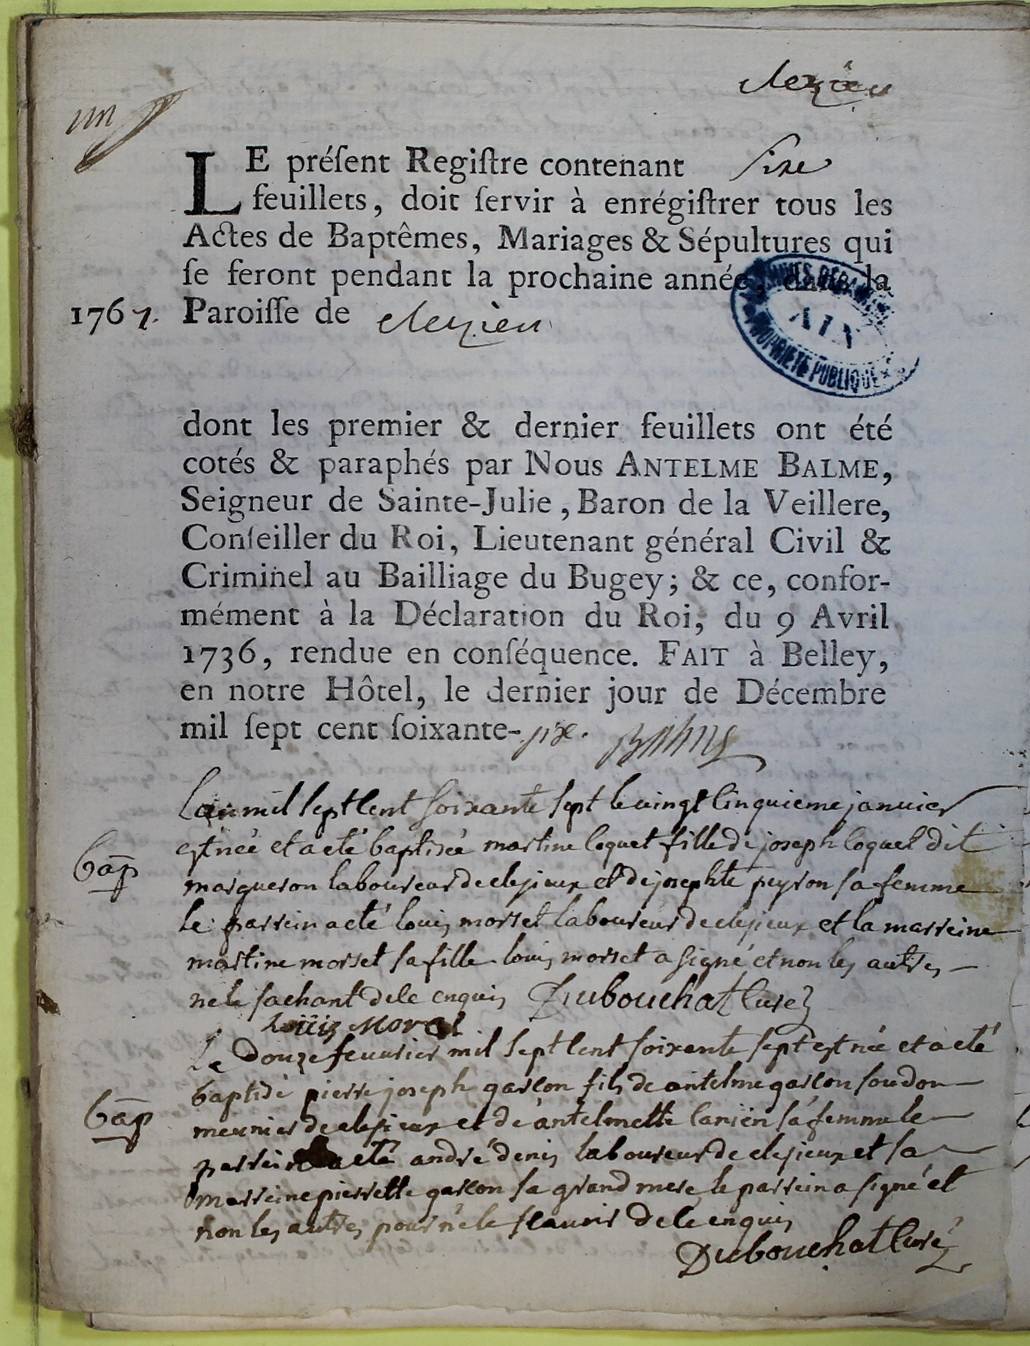 clezieu
un
LE préſent Regiſtre contenant Sixe
feuillets, doit ſervir à enrégiſtrer tous les
Actes de Baptêmes, Mariages & Sépultures qui
ſe feront pendant la prochaine année, dans la
1767. Paroiſſe de clezieu
AIX
PROPRIÉTÉ PUBLIQUE
dont les premier & dernier feuillets ont été
cotés & paraphés par Nous ANTELME BALME,
Seigneur de Sainte-Julie, Baron de la Veillere,
Conſeiller du Roi, Lieutenant général Civil &
Criminel au Bailliage du Bugey; & ce, confor-
mément à la Déclaration du Roi, du 9 Avril
1736, rendue en conſéquence. FAIT à Belley,
en notre Hôtel, le dernier jour de Décembre
mil ſept cent ſoixante-six. Balme
L'an mil sept cent soixante sept le vingt cinquieme janvier
est née et a eté baptisée martine coquet fille de joseph coquet dit
Bap masqueron laboureur de clesieux et de josephte peyson sa femme
le parrein a eté louis morset laboureur de clesieux et la marreine
martine morset sa fille louis morset a signé et non les autres
ne le sachant de ce enquis Dubouchat Curé
Louis Moret
Le douze feuvrier mil sept cent soixente sept est née et a eté
baptisé pierre joseph garcon fils de antelme garcon
Bap meunier de clesieux et de antelmette sa femme le
parrein a eté andré denis laboureur de clesieux et la
marreine pierrette garcon sa grand mere le parrein a signé et
non les autres pour ne le scavoir de ce enquis
Dubouchat Curé